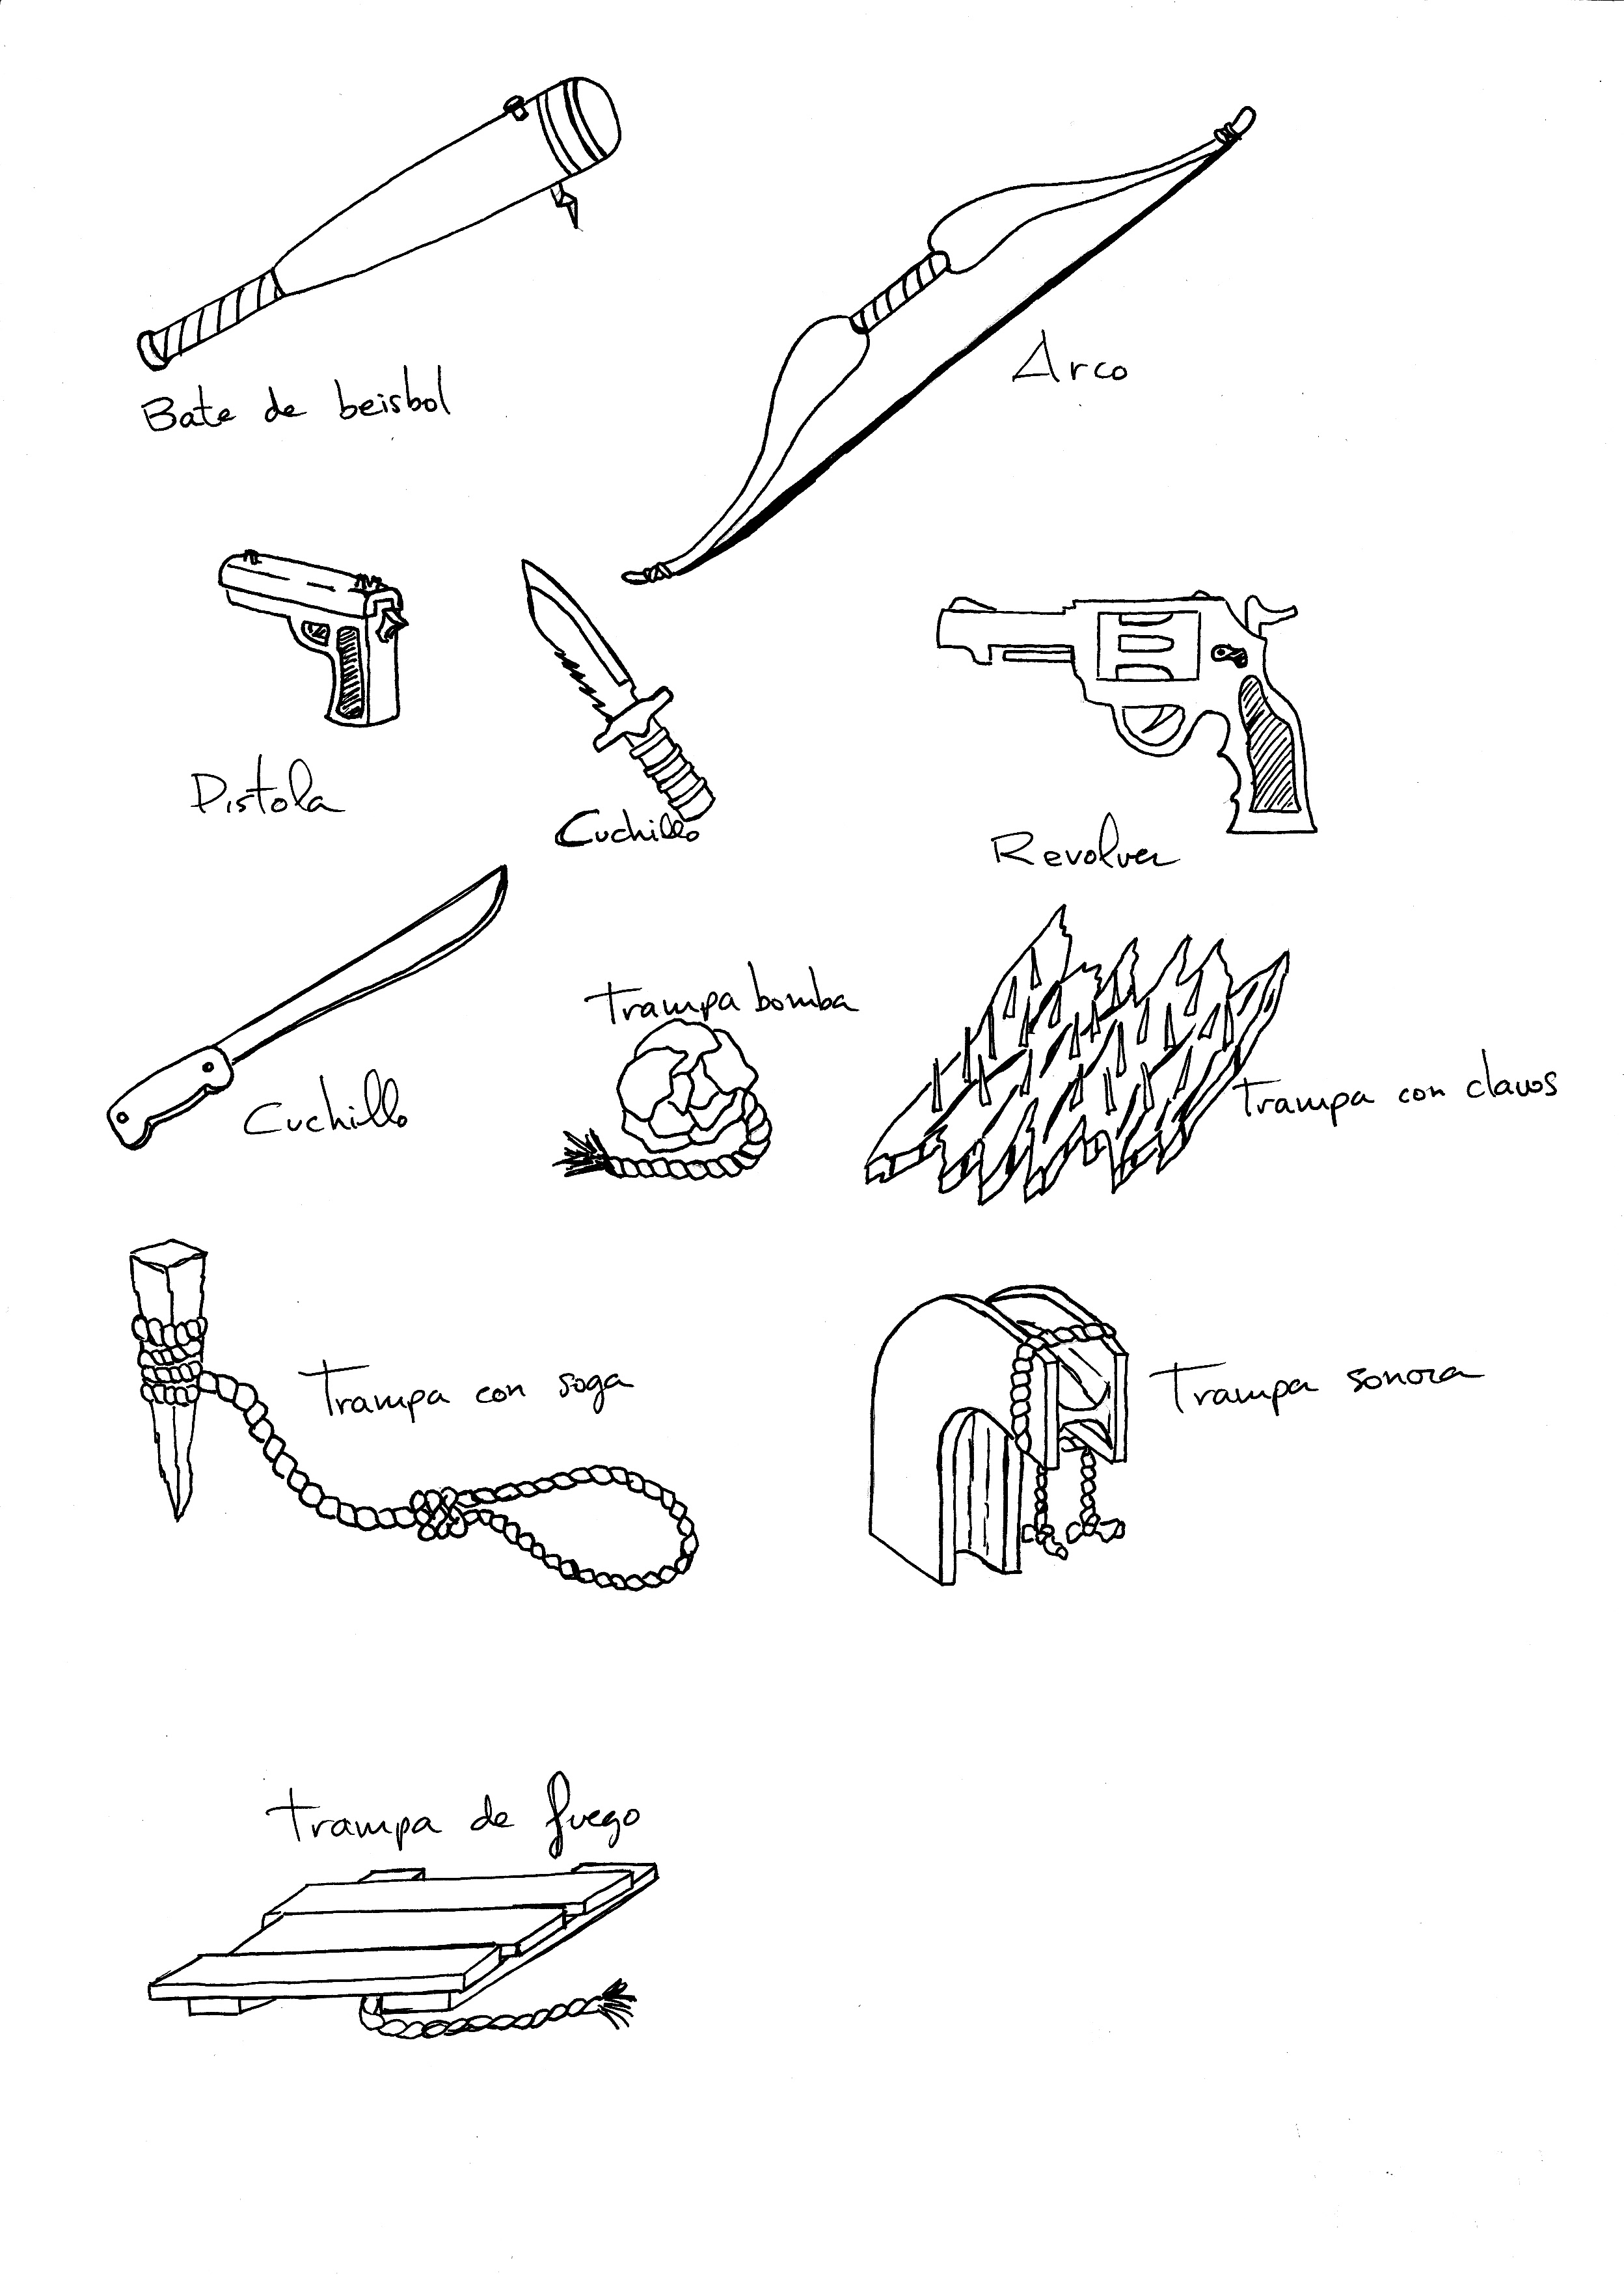 Bate de beisbol
Arco
Pistola
Cuchillo
Revolver
Cuchillo
Trampa bomba
Trampa con clavos
Trampa con soga
Trampa sonora
Trampa de fuego